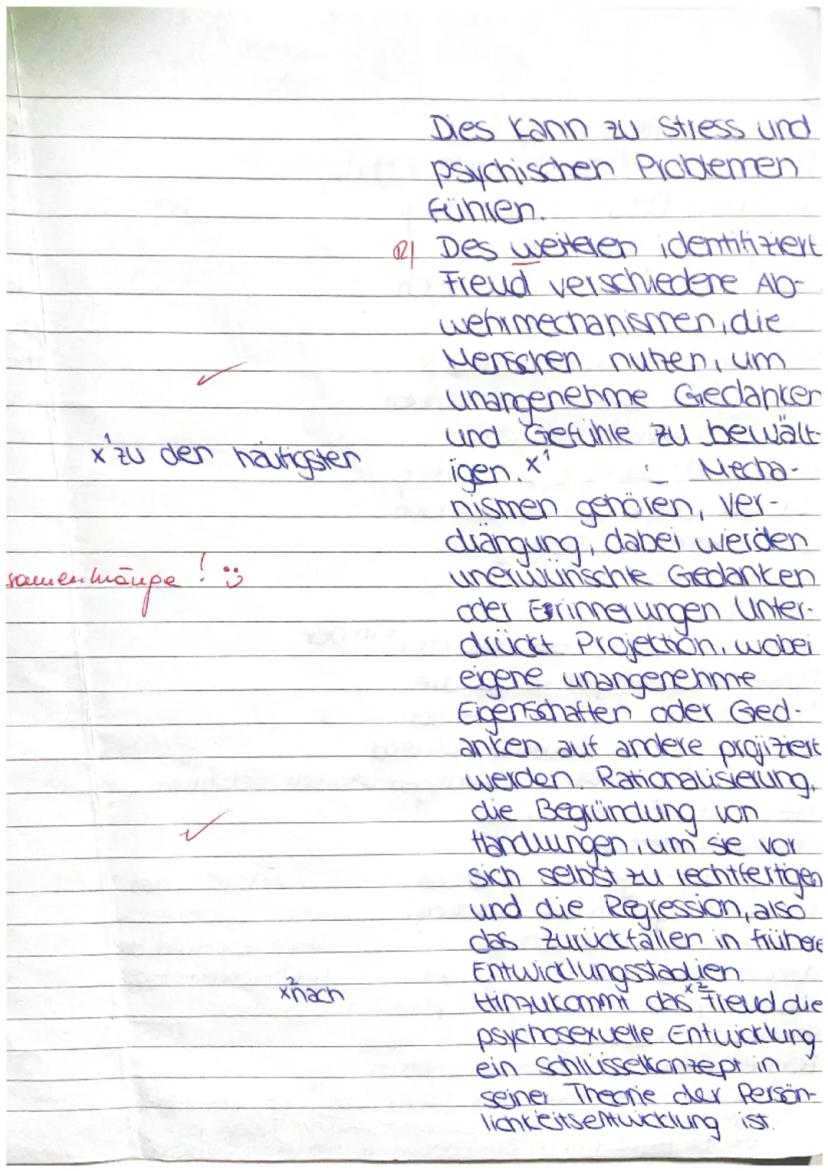 Dies kann zu Stress und
psychischen Problemen
führen.
R| Des weiteren identifiziert
Freud verschiedene Ab-
wehrmechanismen, die
Menschen nutzen, um
unangenehme Gedanken
und Gefühle zu bewält-
x¹ zu den häufigsten
igen. x¹ Mecha-
nismen gehören, Ver-
drängung, dabei werden
samenhänge! :)
unerwünschte Gedanken
oder Errinnerungen Unter-
drückt Projection, wobei
eigene unangenehme
Eigenschaften oder Ged-
anken auf andere projiziert
werden, Rationalisierung,
die Begründung von
Handlungen, um sie vor
sich selbst zu rechtfertigen
und die Regression, also
das zurückfallen in frühere
Entwicklungsstadien.
x² nach
Hinzukommt das x² Freud die
psychosexuelle Entwicklung
ein Schlüsselkonzept in
seiner Theorie der Persön-
lichkeitsentwicklung ist.